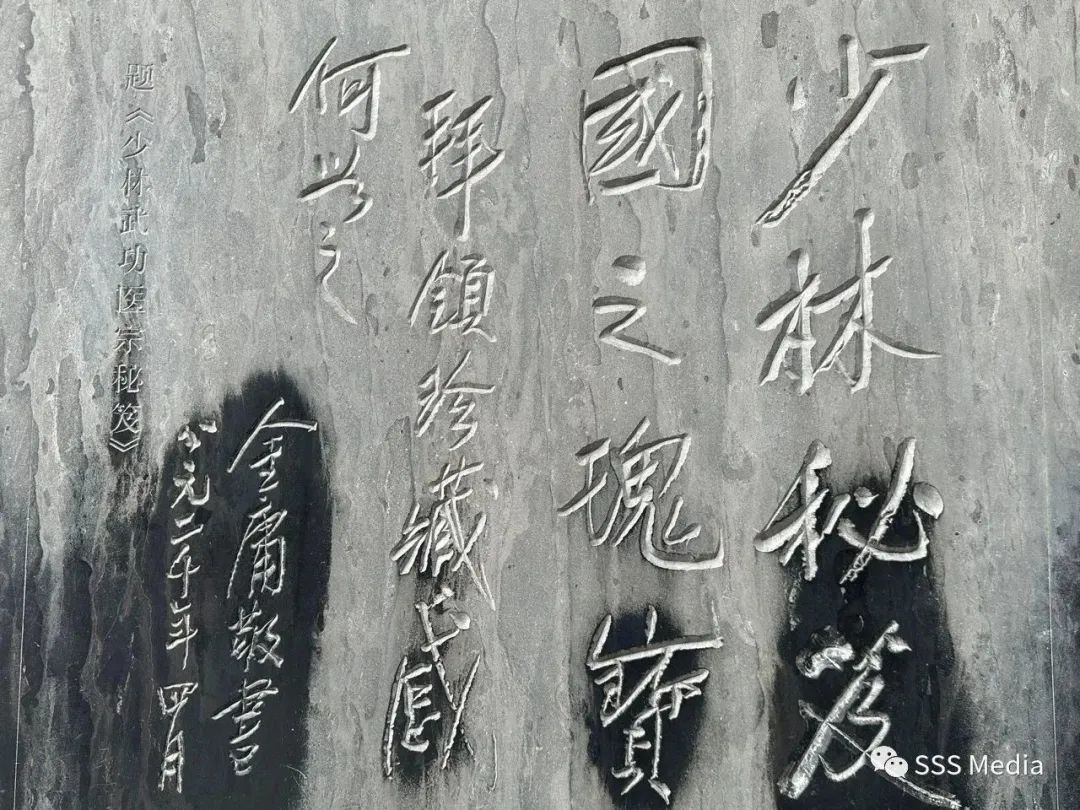 少林秘笈
國之瑰寶
拜領珍藏
何之
金庸敬書
公元二千年四月
题《少林武功医宗秘笈》